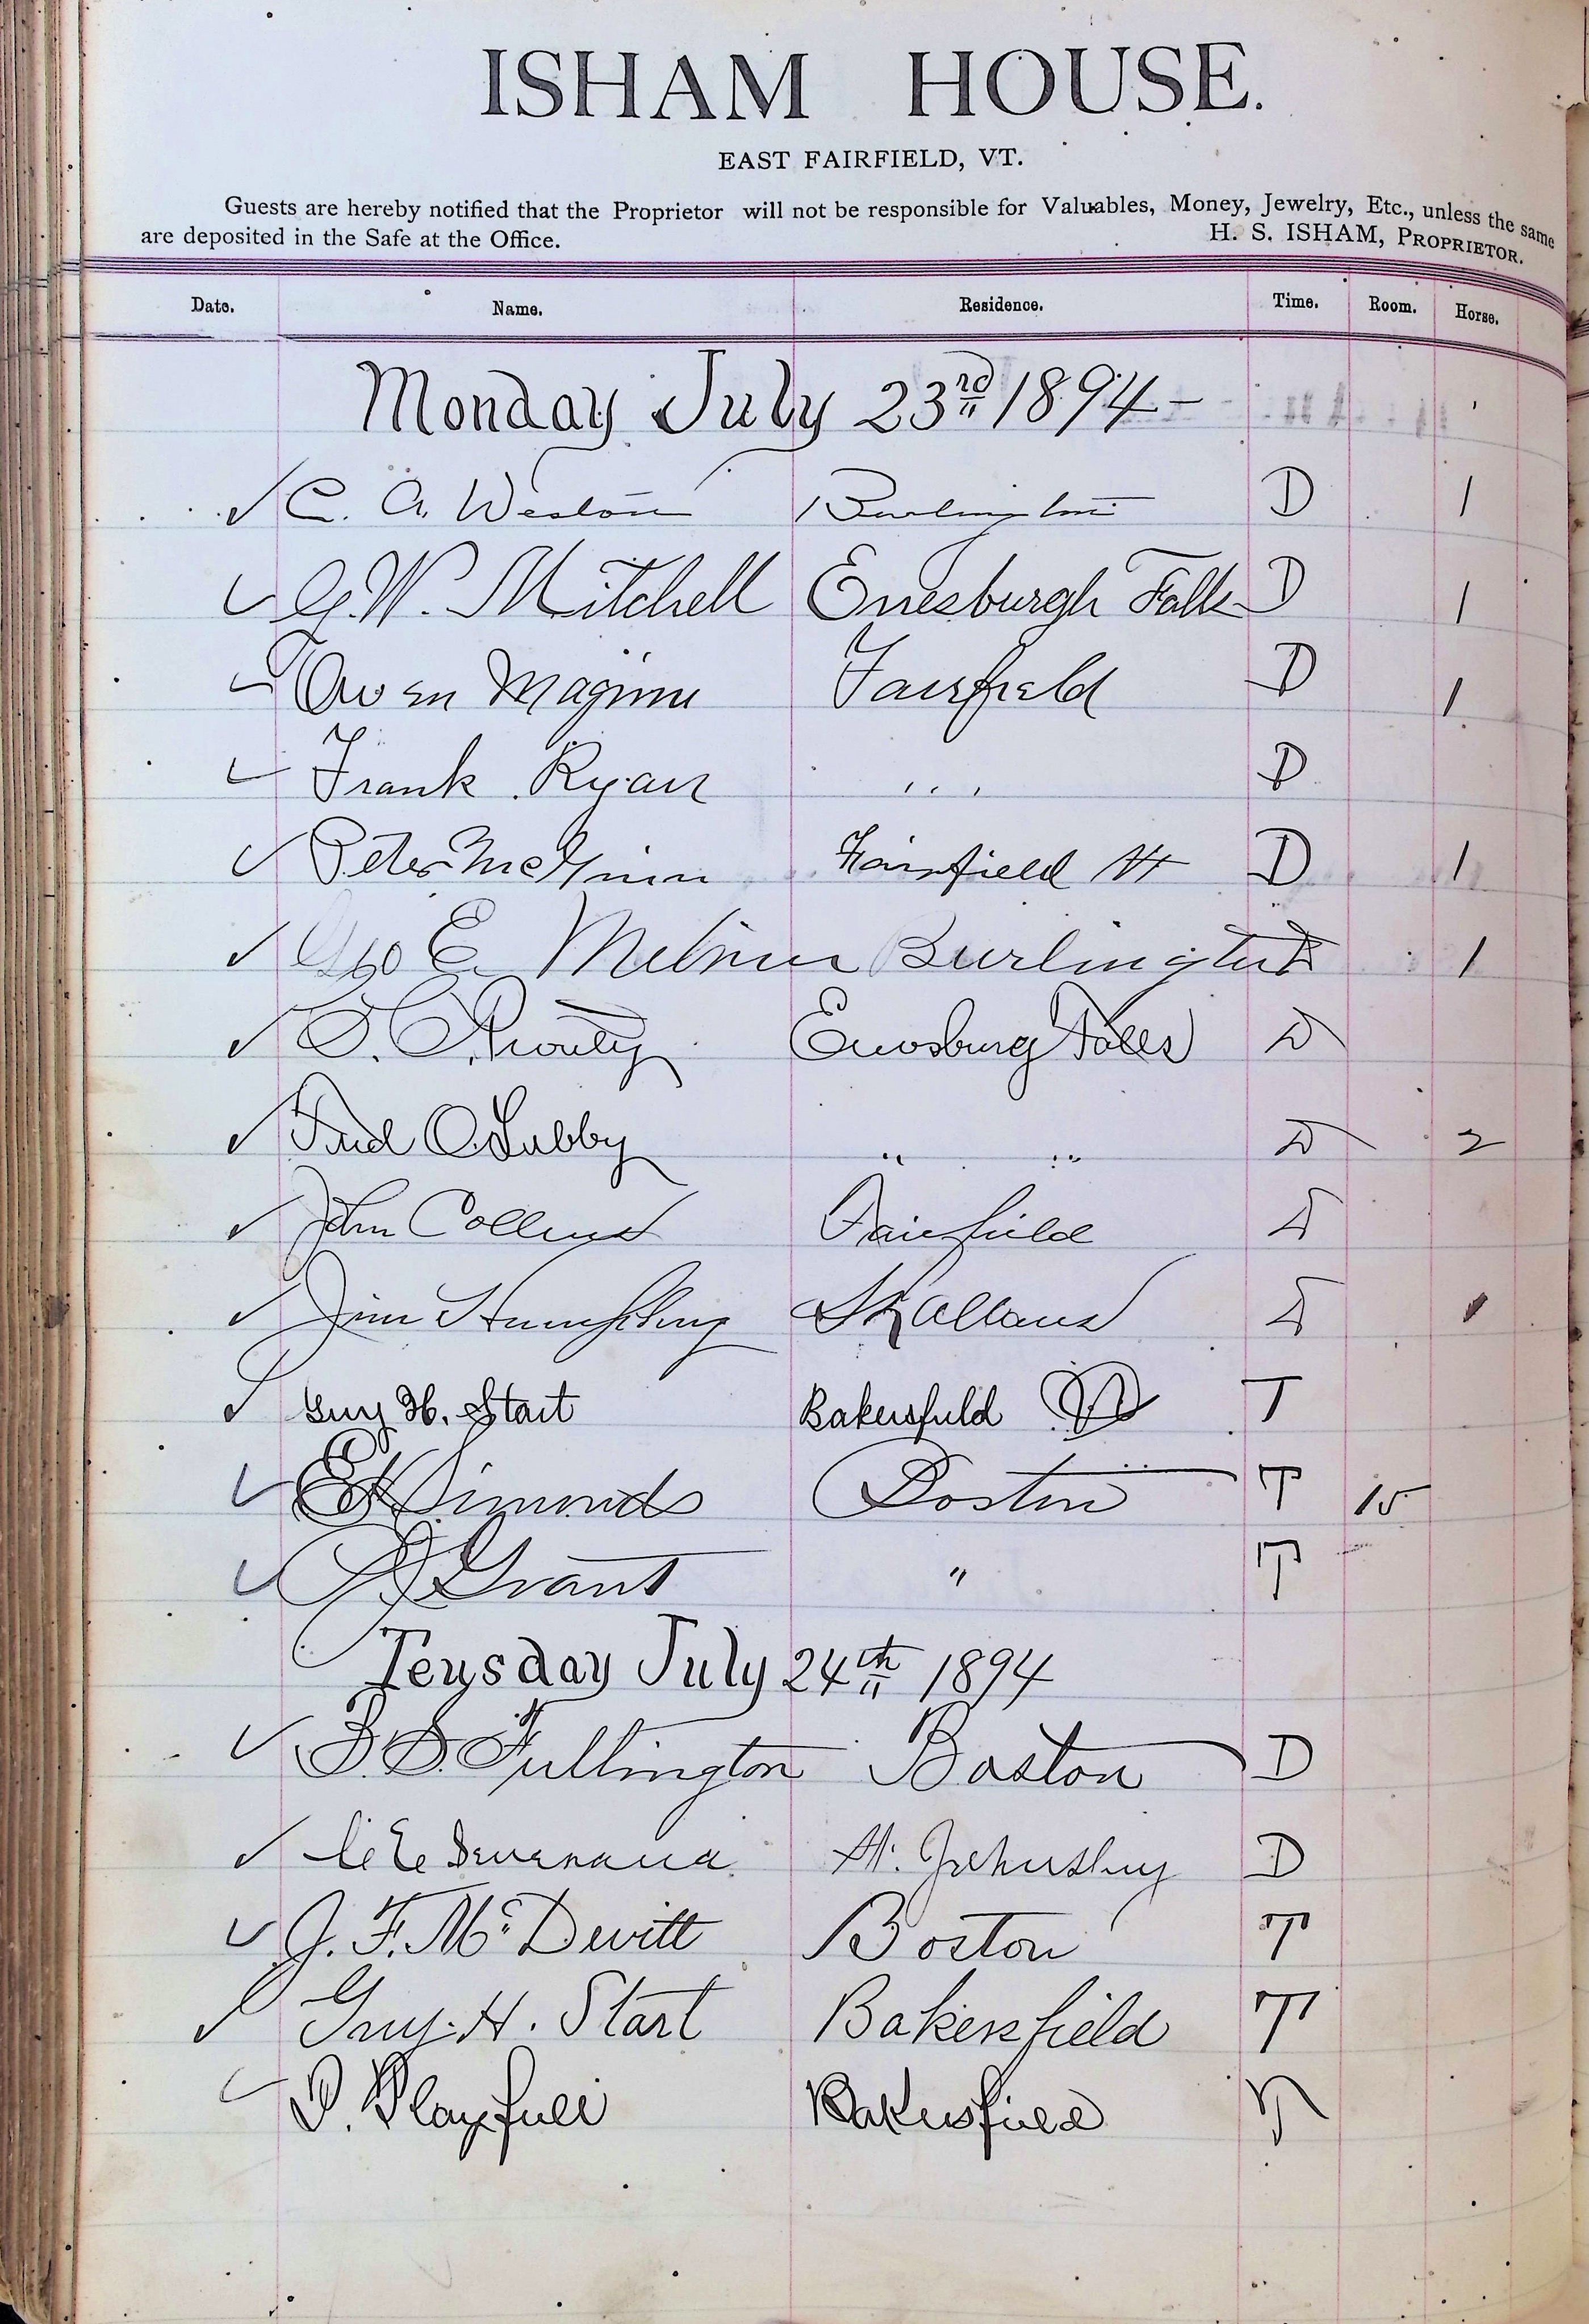 ISHAM HOUSE.
EAST FAIRFIELD, VT.
Guests are hereby notified that the Proprietor will not be responsible for Valuables, Money, Jewelry, Etc., unless the same
are deposited in the Safe at the Office. H. S. ISHAM, PROPRIETOR.
Date. Name. Residence. Time. Room. Horse.
Monday July 23rd 1894-
C. A. Weston Burlington D 1
G. W. Mitchell Enesburgh Falls D 1
Owen Maginn Fairfield D 1
Frank Ryan " D
Peter McGinn Fairfield Vt D 1
Geo E. Burlington D 1
S. C. Prouty Enosburg Falls D
Fred O. Lubby " " D 2
John Collins Fairfield D
Jim Humphrey St Albans D 1
Guy H. Start Bakersfield T
Simonds Boston T 15
Grant " T
Teusday July 24th 1894
B. S. Fullington Boston D
C E St. Johnsbury D
J. F. McDevitt Boston T
Guy H. Start Bakersfield T
Bakersfield T